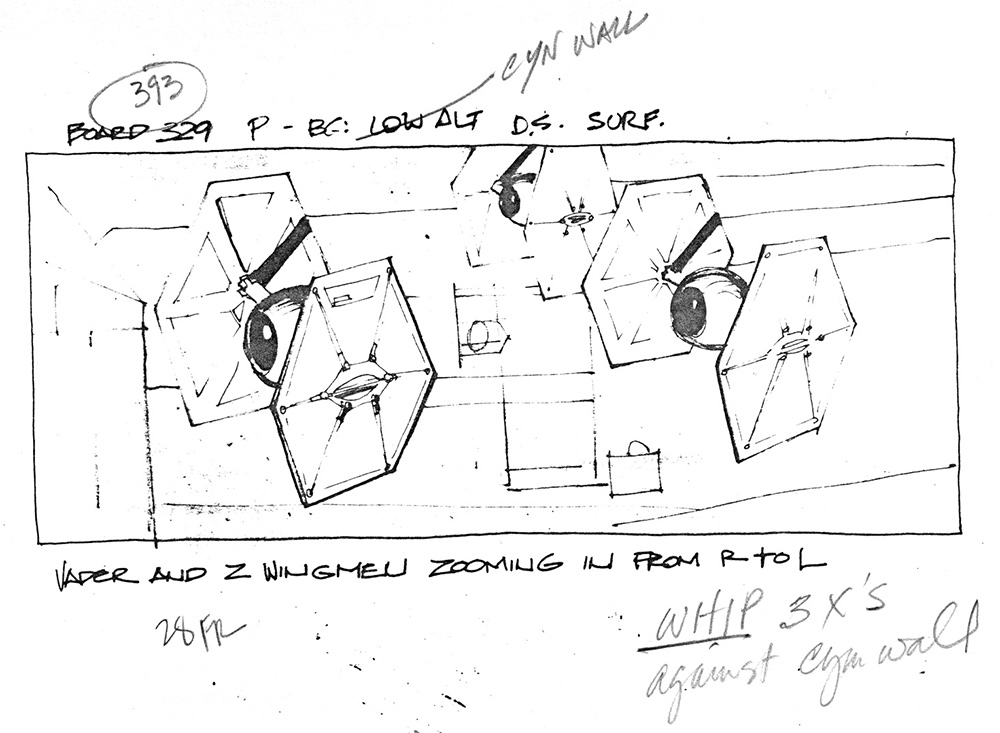 CYN WALL
393
BOARD 329 P - BG: LOW ALT D.S. SURF.
VADER AND 2 WINGMEN ZOOMING IN FROM R TO L
28 FR
WHIP 3 X'S
against cyn wall